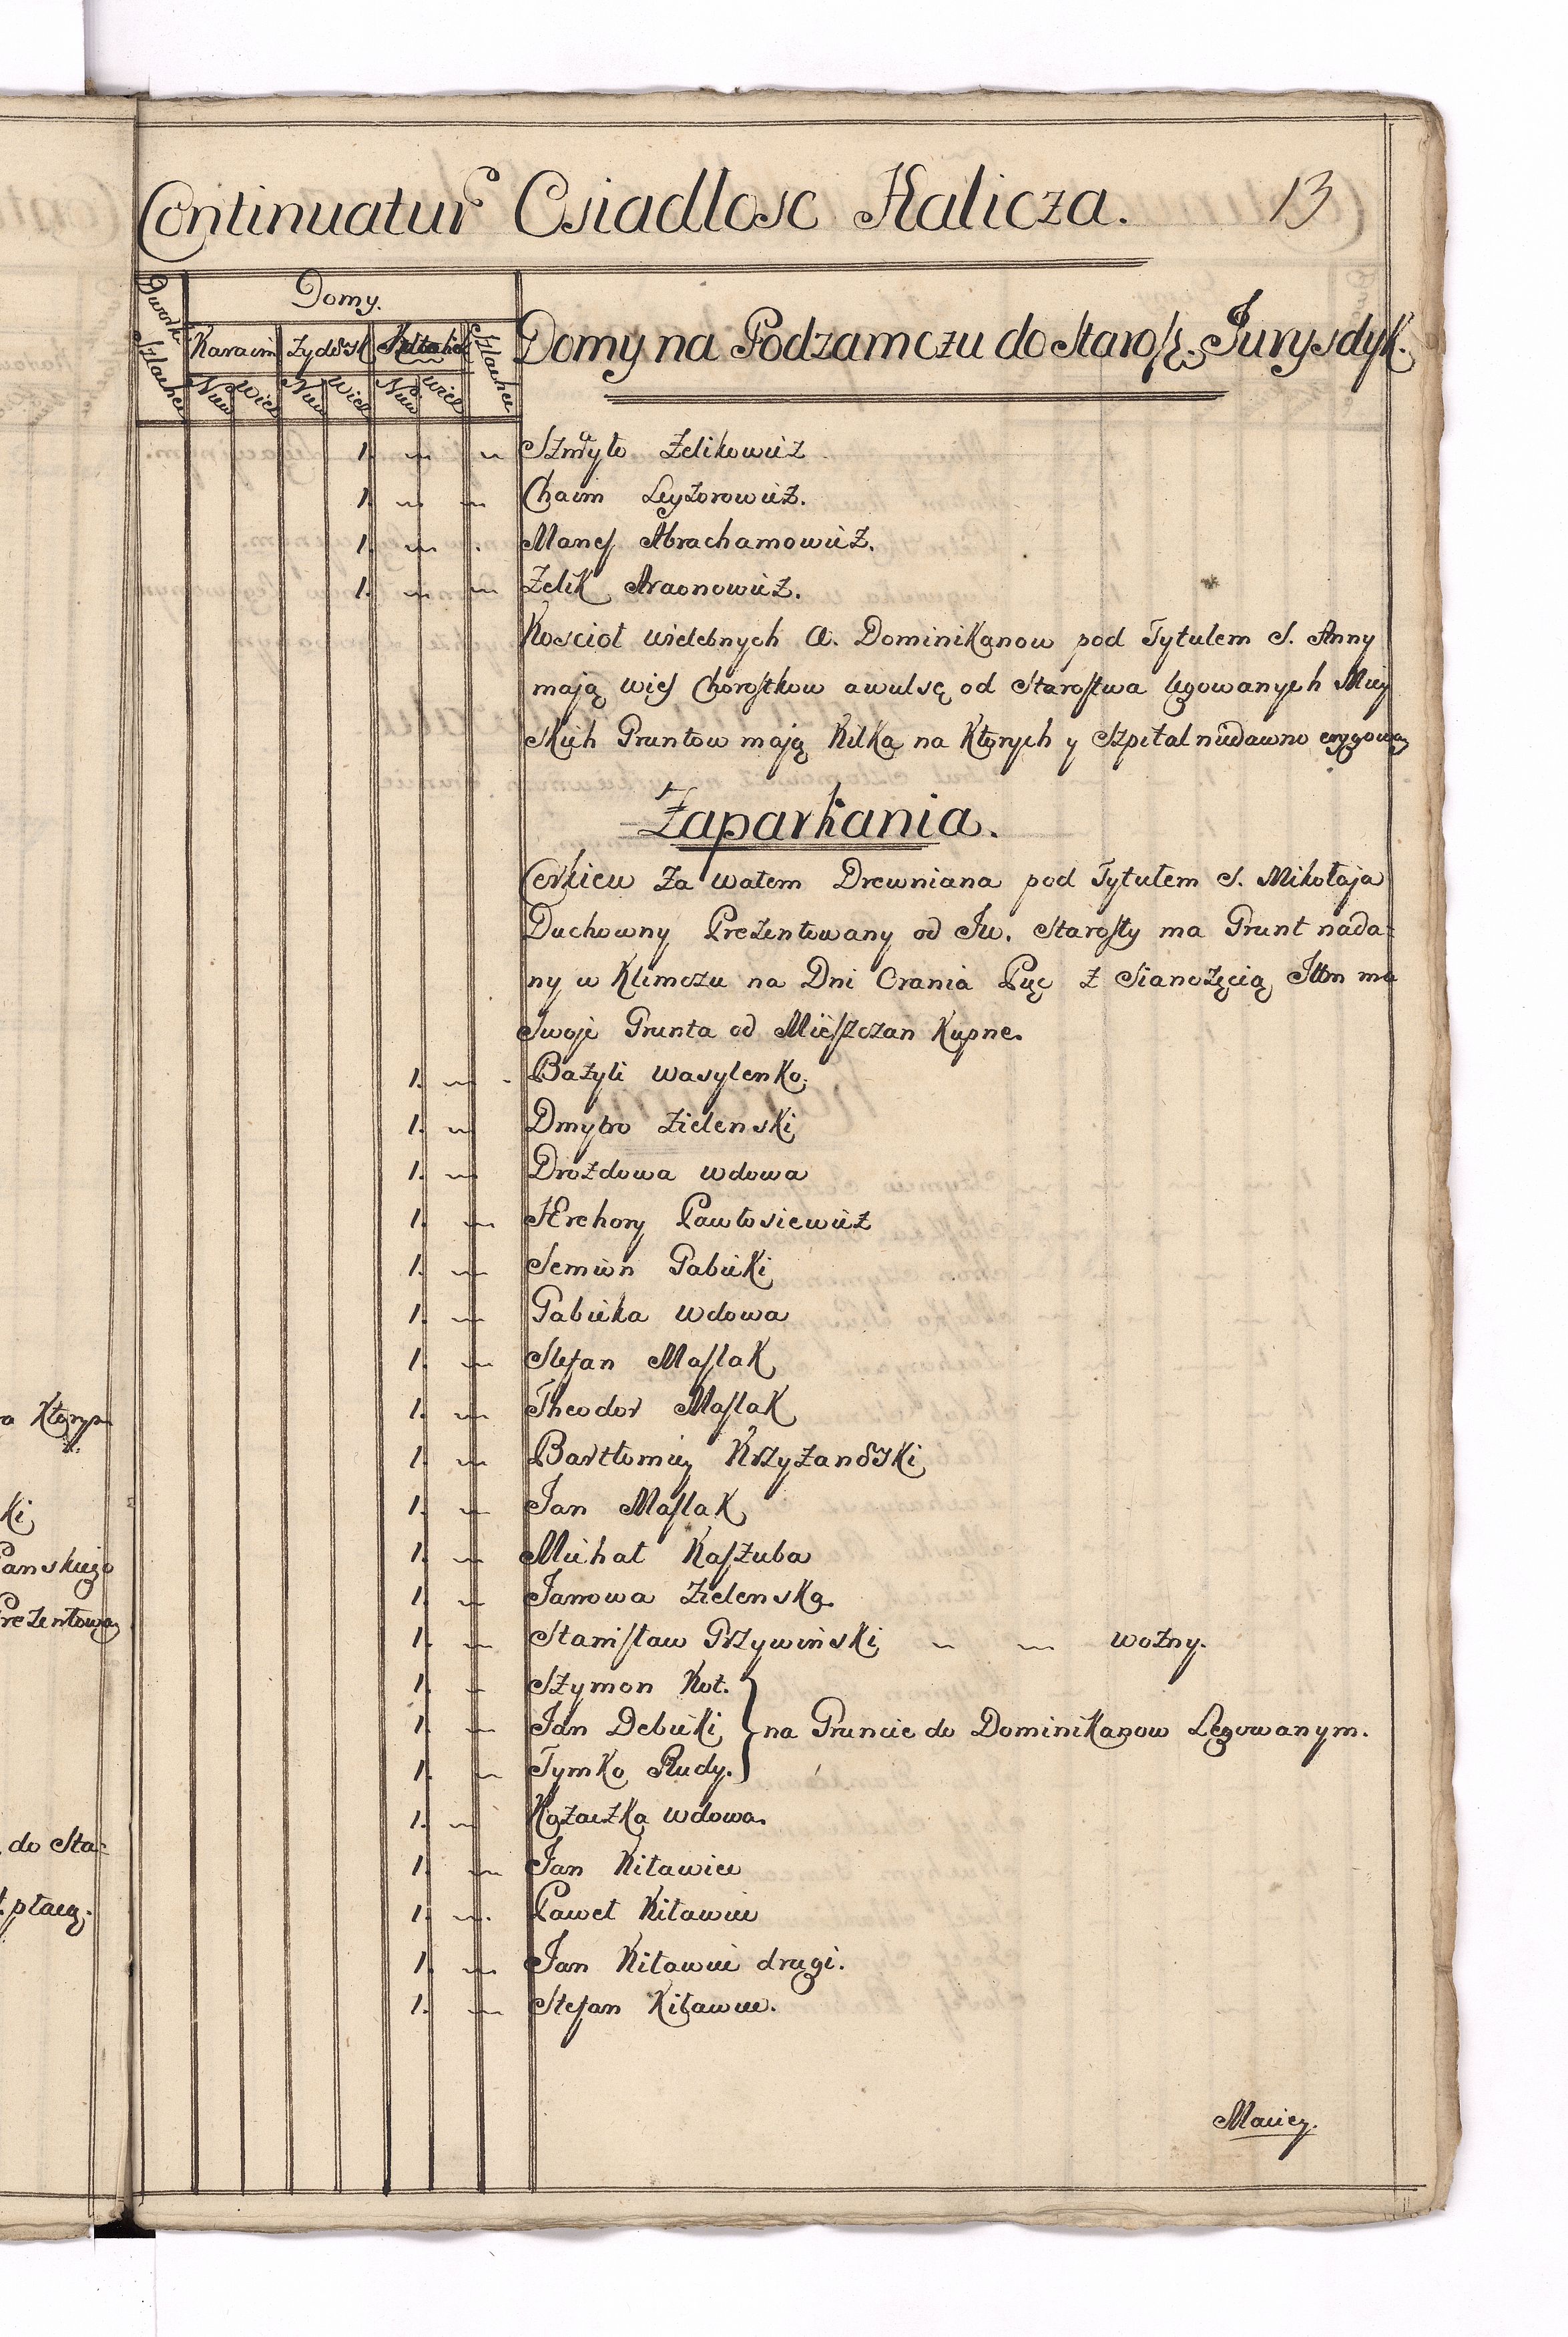 Continuatur Osiadlosc Halicza. 13
Dworki Szlachec
Domy.
Karaim Zydosk Szlachec
Nuw Wiel Nuw Wiel Nuw Wiel
Domy na Podzamczu do Starosz. Jurysdyk.
1. Szmyło Zelikowicz
1. Chaim Leyzorowicz.
1. Manes Abrachamowicz.
1. Zelik Araonowicz.
Kosciol Wielebnych O. Dominikanow pod Tytulem S. Anny
mają wies Chorostkow awulsę od Starostwa legowanych Miey
skich Gruntow mają Kilka na Ktorych y Szpital niedawno erygowa
Zaparkania.
Cerkiew Za wałem Drewniana pod Tytułem S. Mikołaja
Duchowny Prezentowany od Jw. Starosty ma Grunt nada:
ny w Klimczu na Dni Orania Pięc z Sianożęcią Ittm ma
Swoje Grunta od Mieszczan Kupne.
1. Bazyli Wasylenko.
1. Dmytro Zielenski
1. Drozdowa wdowa
1. Hrehory Pawłosiewicz
1. Semion Gabicki
1. Gabicka wdowa
1. Stefan Maslak
1. Theodor Maslak
1. Bartłomiey Krzyżanoski
1. Jan Maslak
1. Michał Kaszuba
1. Janowa Zielenska
1. Stanisław Grzywiński wozny.
1. Szymon Kot.
1. Jan Debicki na Gruncie do Dominikanow Legowanym.
1. Tymko Rudy.
1. Kozaczka wdowa.
1. Jan Kitawiec
1. Paweł Kitawiec
1. Jan Kitawiec drugi.
1. Stefan Kitawiec.
Maciey.
a Ktoryp
ki
Panskiego
Prezentowa
do Sta:
płacą.